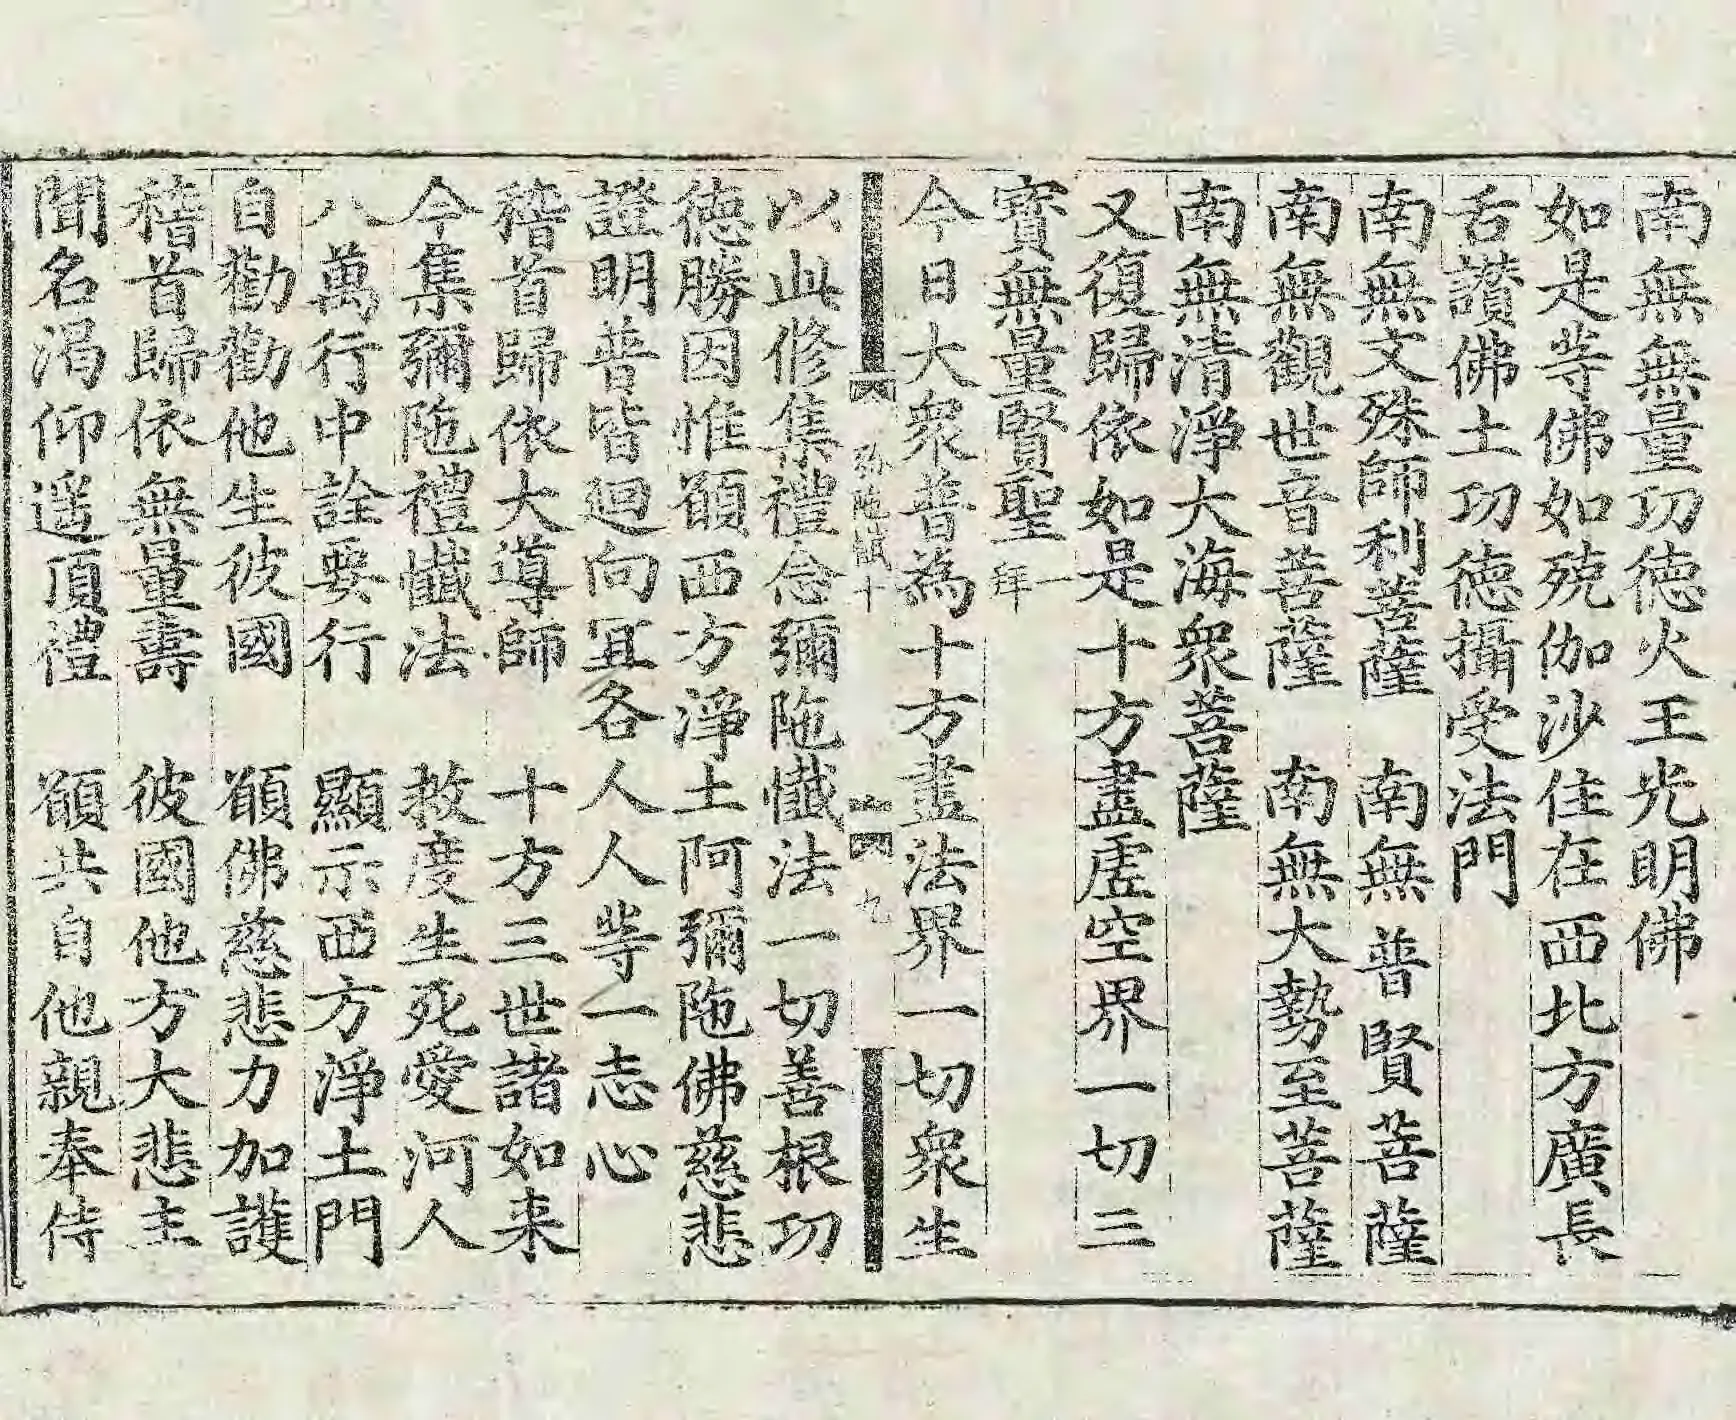 南無無量功德火王光明佛
如是等佛如殑伽沙住在西北方廣長
舌讃佛土功德攝受法門
南無文殊師利菩薩 南無普賢菩薩
南無觀世音菩薩 南無大勢至菩薩
南無清淨大海衆菩薩
又復歸依如是十方盡虛空界一切三
寳無量賢聖 一拜
今日大衆普為十方盡法界一切衆生
弥陁懺十 九
以此修集禮念彌陁懺法一切善根功
德勝因惟願西方淨土阿彌陁佛慈悲
證明普皆迴向冝各人人等一志心
稽首歸依大導師 十方三世諸如来
今集彌陁禮懺法 救度生死愛河人
八萬行中詮要行 顯示西方淨土門
自勸勸他生彼國 願佛慈悲力加護
稽首歸依無量壽 彼國他方大悲主
聞名渴仰遥頂禮 願共自他親奉侍